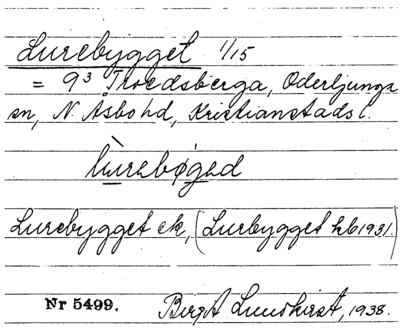 Lurebygget 1/15
= 9³ Troedsberga, Oderljunga
sn, N. Åsbo hd, Kristianstads l.
lùrebøged
Lurebygget ek, (Lurbygget hb 1931.)
Nr 5499. Birgit Lundkvist, 1938.